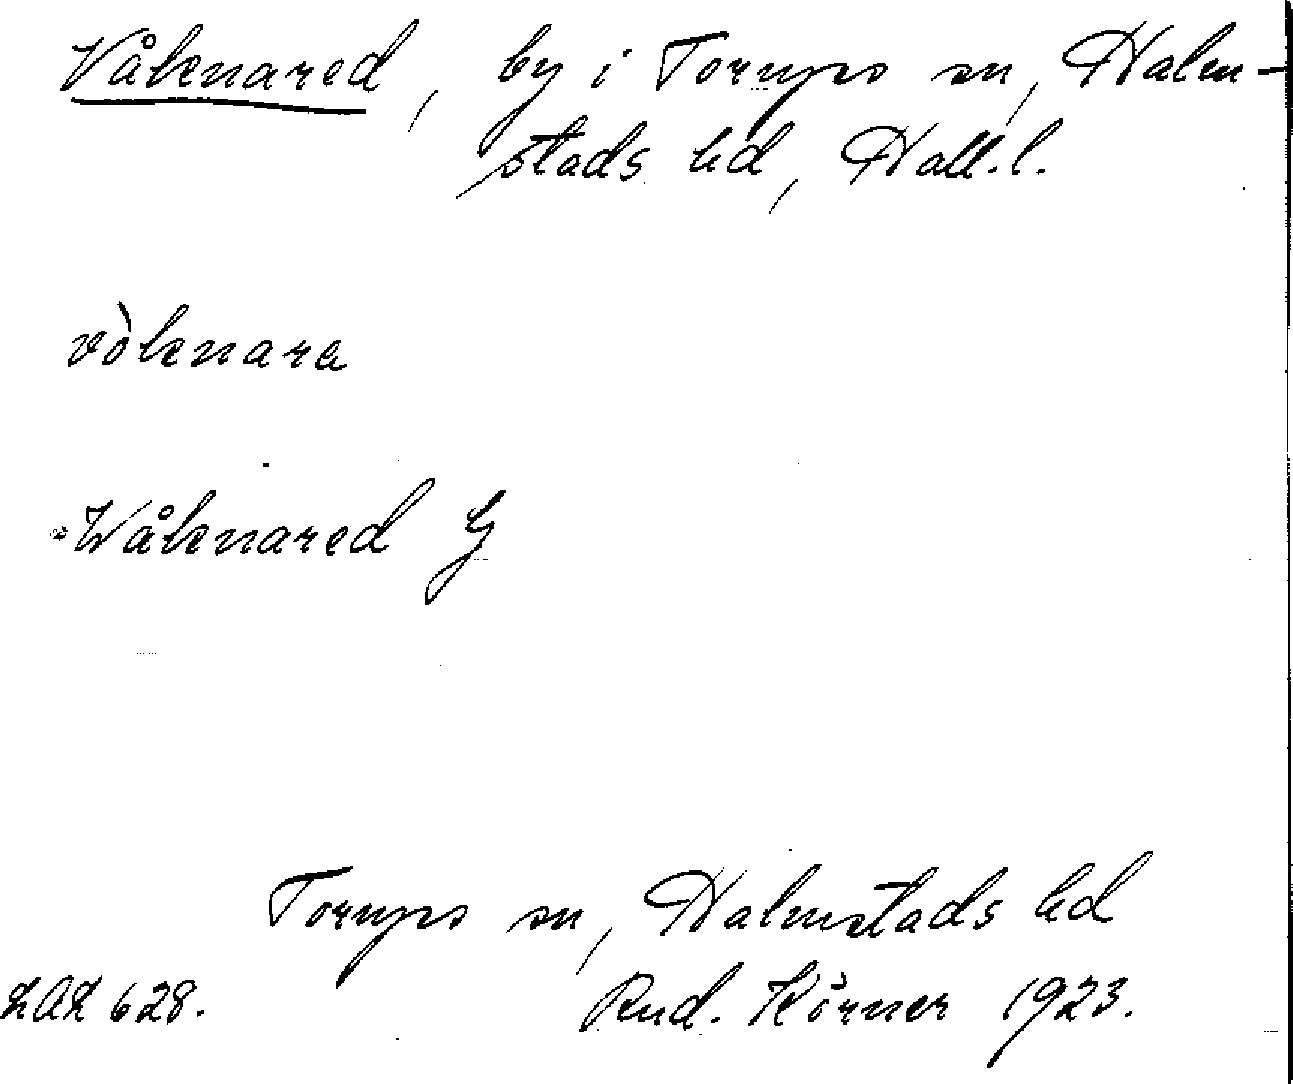 Våknared, by i Torups sn, Halm-
stads hd, Hall.l.
vòknara
Wåknared G
Torups sn, Halmstads hd
LAL 628. Rud. Körner 1923.